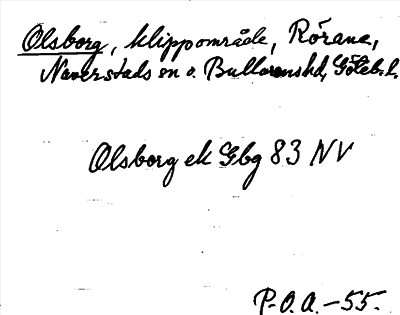 Olsborg, klippområde, Rörane,
Naverstads sn o. Bullarens hd, Göteb. l.
Olsborg ek Gbg 83 NV
P.O.A. -55.